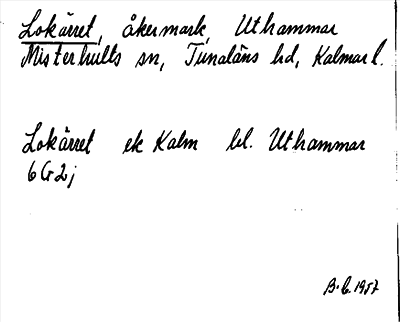 Lokärret, åkermark, Uthammar
Misterhults sn, Tunaläns hd, Kalmar l.
Lokärret ek Kalm bl. Uthammar
6 G 2 j
B. C. 1957